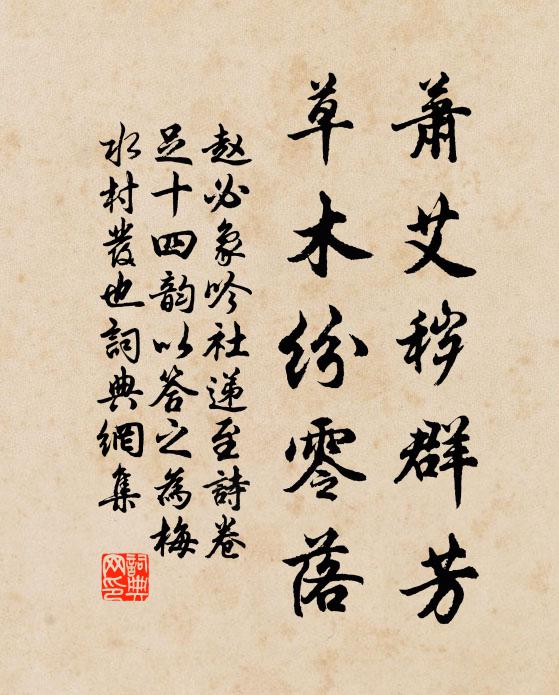 蕭艾秽群芳
草木纷零落
赵必象吟社递至詩卷
足十四韵以答之為梅
水村發也詞典網集
詞典網印